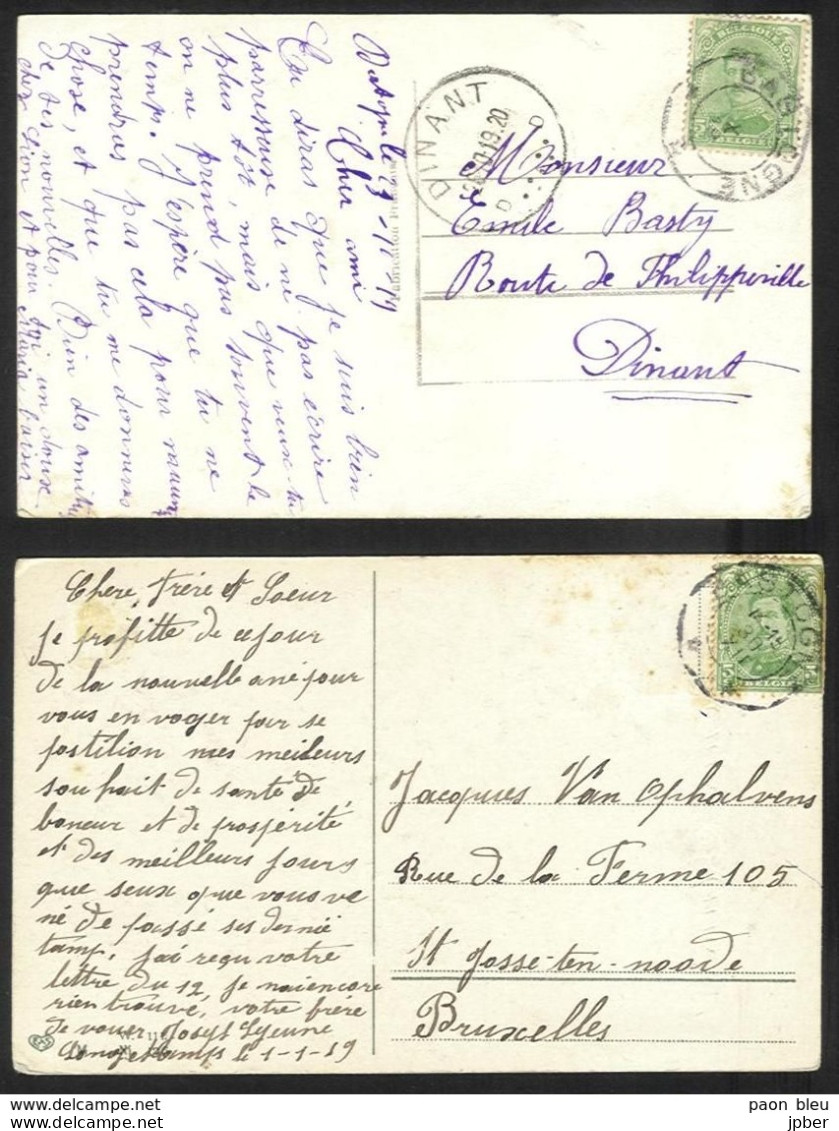 Cher ami
Tu diras que je suis bien
parresseuse de ne pas écrire
plus tôt, mais que veux-tu
on ne prend pas souvent le
temps. J'espère que tu ne
prendras pas cela pour
chose, et que tu me donneras
de tes nouvelles. Bien des amitiés
chez Lion et pour toi un doux
baiser
Maria
DINANT
BELGIQUE
BELGIË
Monsieur
Emile Basty
Route de Philippeville
Dinant
Chere frére et Soeur
je profitte de ce jour
de la nouvelle ané pour
vous en voyer par se
postilion mes meileurs
souhait de santé de
boneur et de prosperité
et des meilleurs jours
que seux que vous ve
né de passé ses dernié
tamp, j'ai reçu votre
lettre du 12, je nai encore
rien trouvé, votre frére
de vouer Josept Lejeune
Longchamps le 1-1-19
BASTOGNE
BELGIË
Jacques Van Ophalvens
Rue de la Ferme 105
St Josse-ten-noode
Bruxelles
paon bleu
jpber